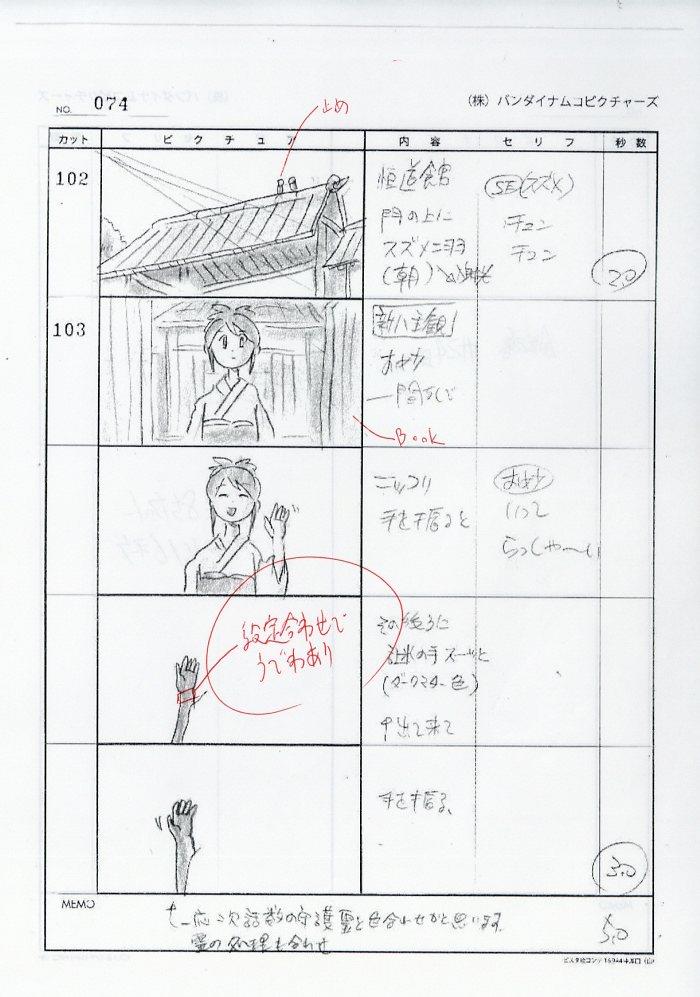 NO. 074
(株) バンダイナムコピクチャーズ
止め
カット ピクチュア 内容 セリフ 秒数
102
恒道館
門の上に
スズメ二ヨヨ
(朝)
SE(スズメ)
チュン
チュン
2.0
103
「新八主観」
お妙
一間あって
Book
ニッコリ
手を振ると
お妙
いって
らっしゃ〜い
設定合わせで
うでわあり
その後ろに
謎の手スーッと
(ダークマター色)
中出て来て
手を振る、
3.0
MEMO
一応次話数の守護霊と色合わせかと思います。
霊の処理も合わせ
5.0